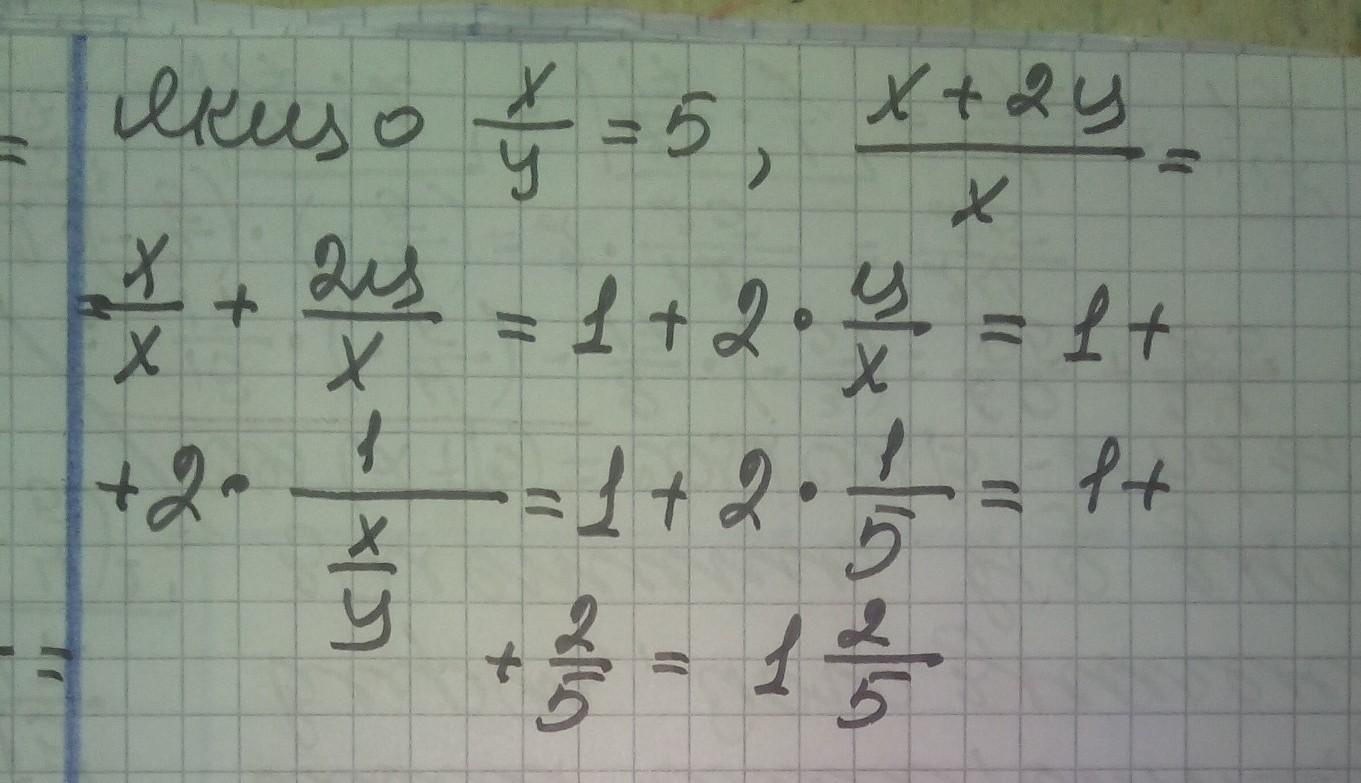 Якщо x/y = 5, (x + 2y)/x =
= x/x + 2y/x = 1 + 2 • y/x = 1 +
+ 2 • 1/(x/y) = 1 + 2 • 1/5 = 1 +
+ 2/5 = 1 2/5